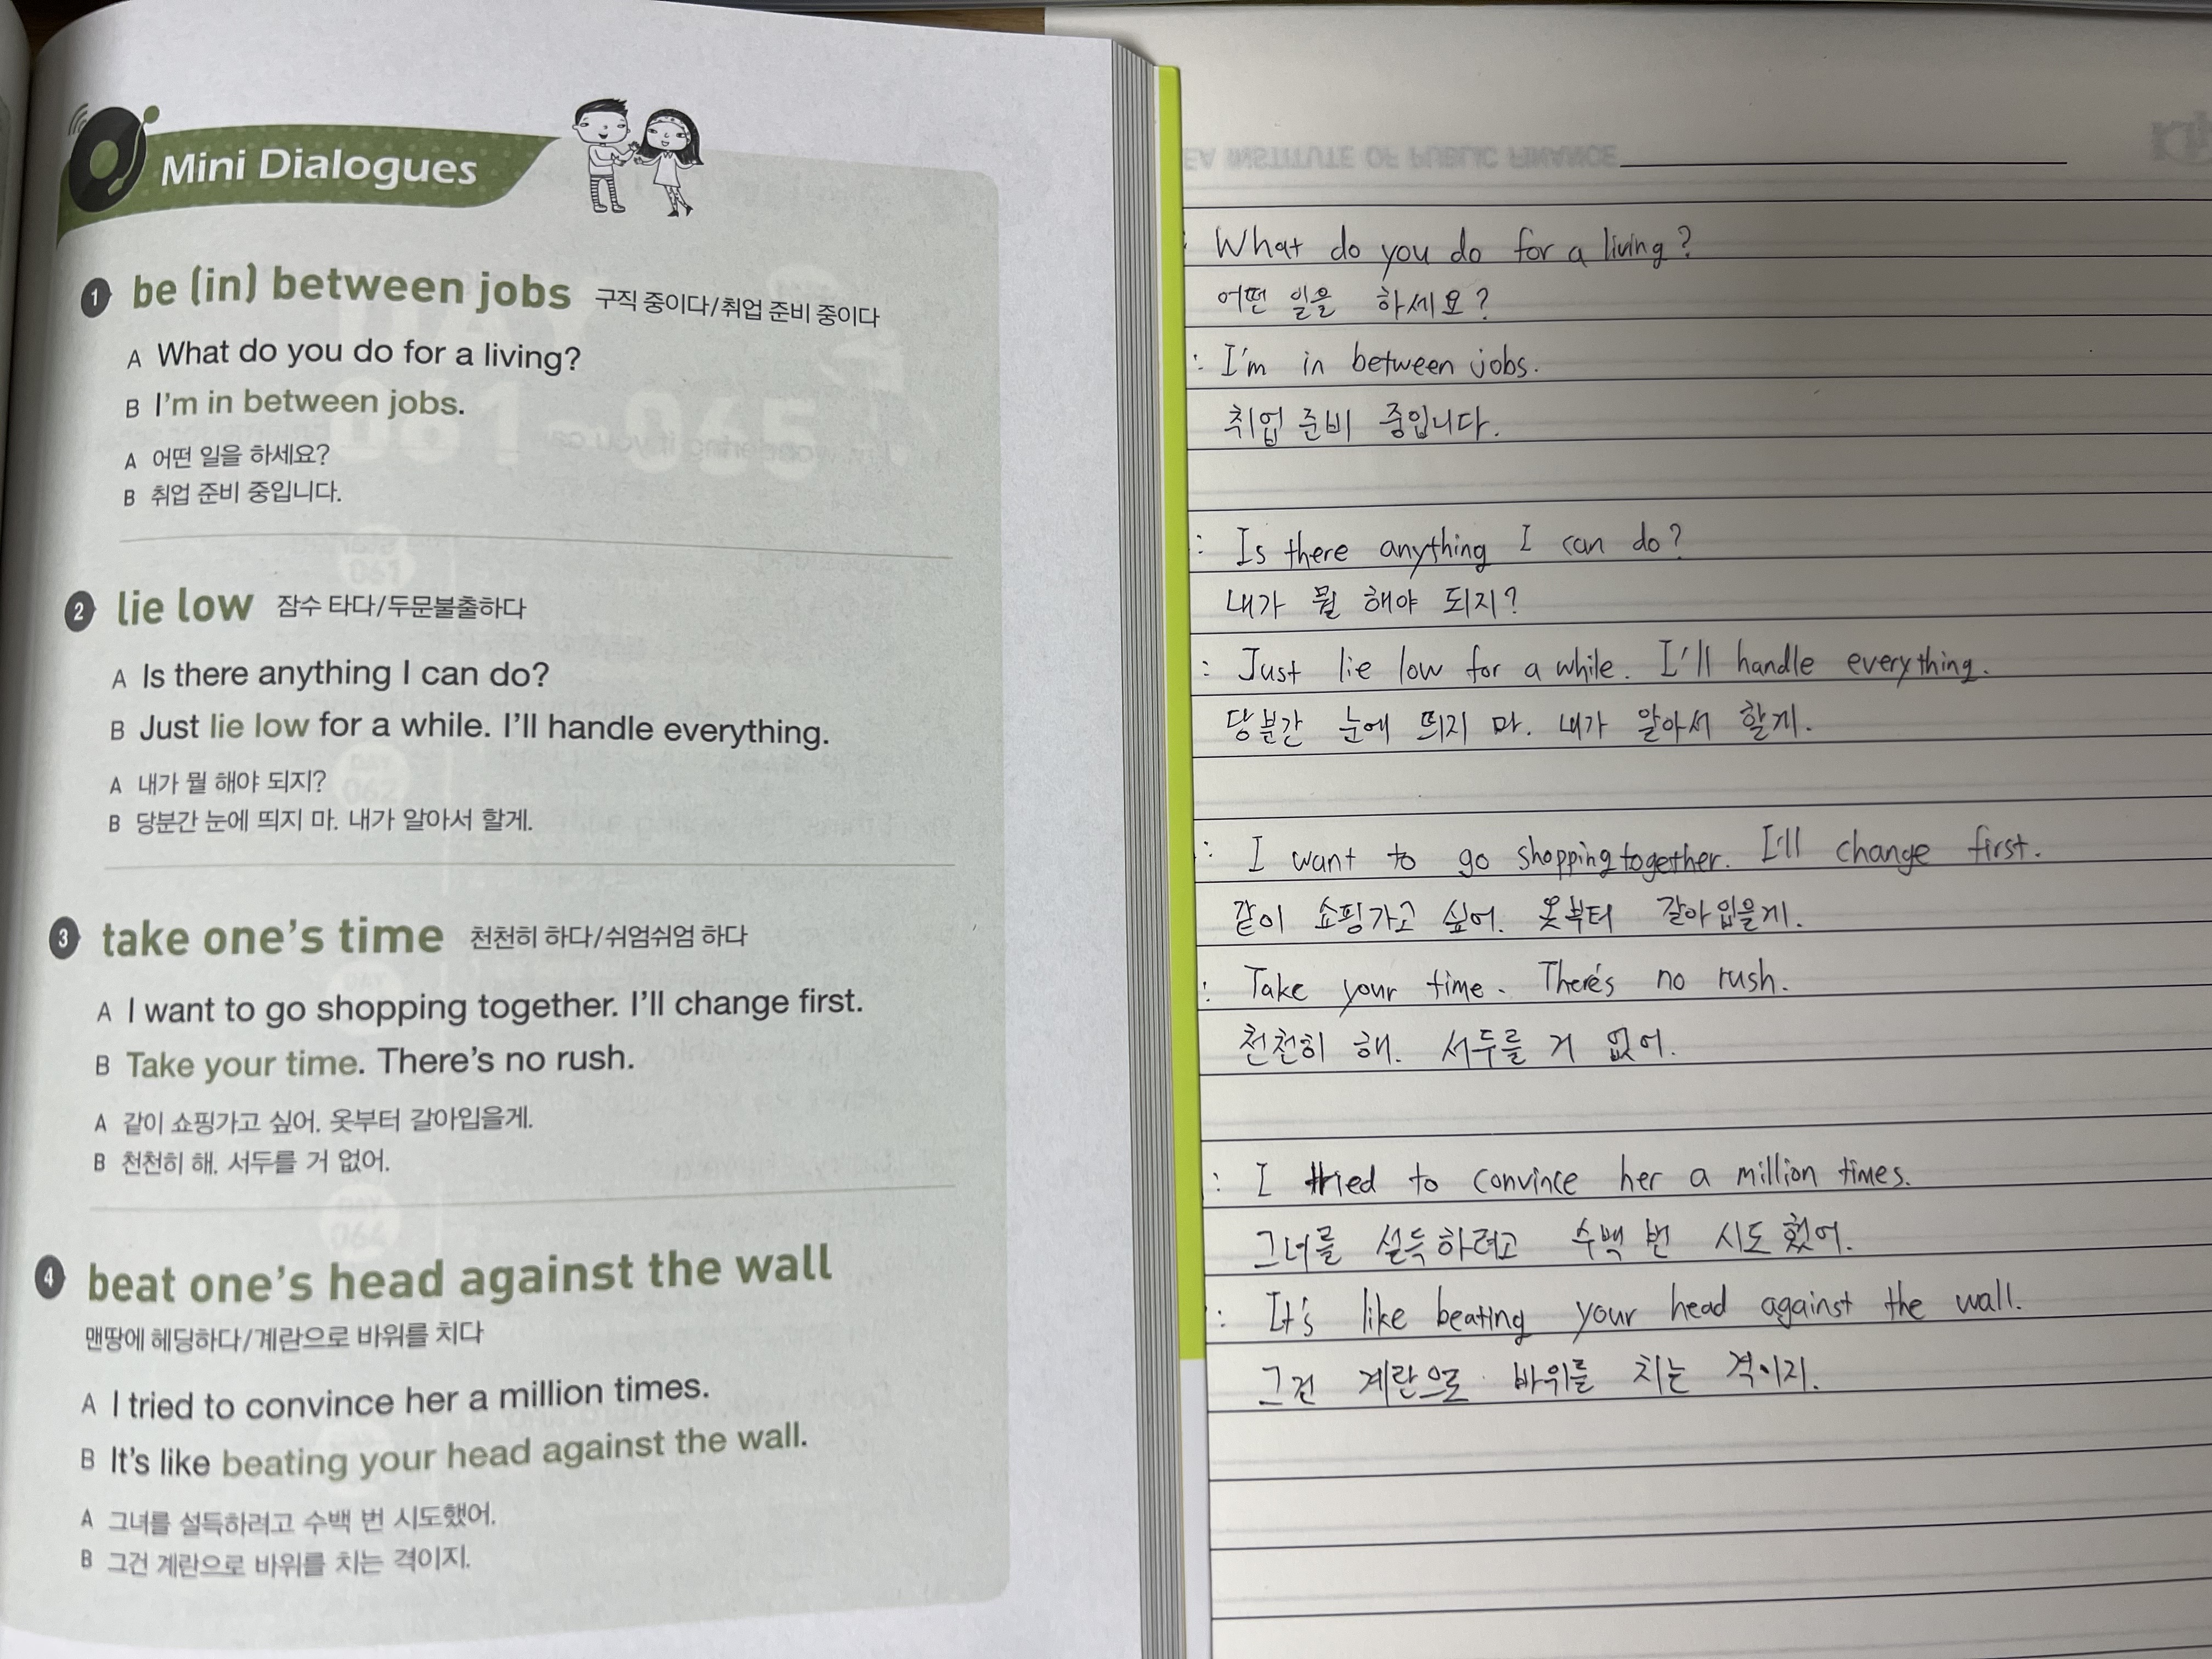 Mini Dialogues
1 be (in) between jobs 구직 중이다/취업 준비 중이다
A What do you do for a living?
B I'm in between jobs.
A 어떤 일을 하세요?
B 취업 준비 중입니다.
2 lie low 잠수 타다/두문불출하다
A Is there anything I can do?
B Just lie low for a while. I'll handle everything.
A 내가 뭘 해야 되지?
B 당분간 눈에 띄지 마. 내가 알아서 할게.
3 take one's time 천천히 하다/쉬엄쉬엄 하다
A I want to go shopping together. I'll change first.
B Take your time. There's no rush.
A 같이 쇼핑가고 싶어. 옷부터 갈아입을게.
B 천천히 해. 서두를 거 없어.
4 beat one's head against the wall
맨땅에 헤딩하다/계란으로 바위를 치다
A I tried to convince her a million times.
B It's like beating your head against the wall.
A 그녀를 설득하려고 수백 번 시도했어.
B 그건 계란으로 바위를 치는 격이지.
INSTITUTE OF PUBLIC FINANCE
: What do you do for a living?
어떤 일을 하세요?
: I'm in between jobs.
취업 준비 중입니다.
: Is there anything I can do?
내가 뭘 해야 되지?
: Just lie low for a while. I'll handle everything.
당분간 눈에 띄지 마. 내가 알아서 할게.
: I want to go shopping together. I'll change first.
같이 쇼핑가고 싶어. 옷부터 갈아입을게.
: Take your time. There's no rush.
천천히 해. 서두를 거 없어.
: I tried to convince her a million times.
그녀를 설득하려고 수백 번 시도했어.
: It's like beating your head against the wall.
그건 계란으로 바위를 치는 격이지.